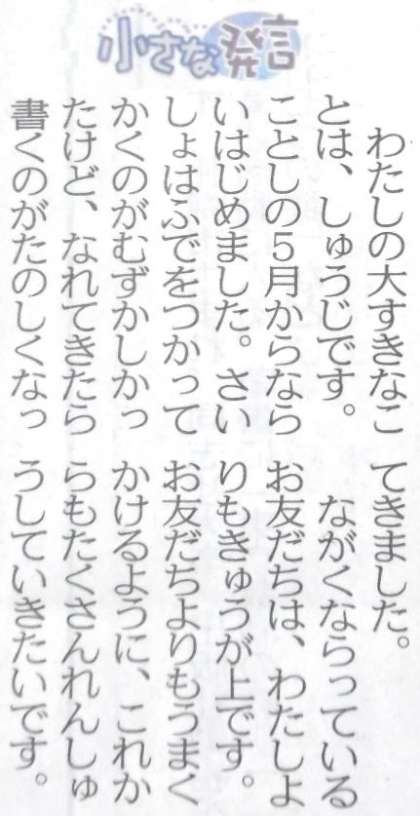 小さな発言
わたしの大すきなこ
とは、しゅうじです。
ことしの5月からなら
いはじめました。さい
しょはふでをつかって
かくのがむずかしかっ
たけど、なれてきたら
書くのがたのしくなっ
てきました。
ながくならっている
お友だちは、わたしよ
りもきゅうが上です。
お友だちよりもうまく
かけるように、これか
らもたくさんれんしゅ
うしていきたいです。